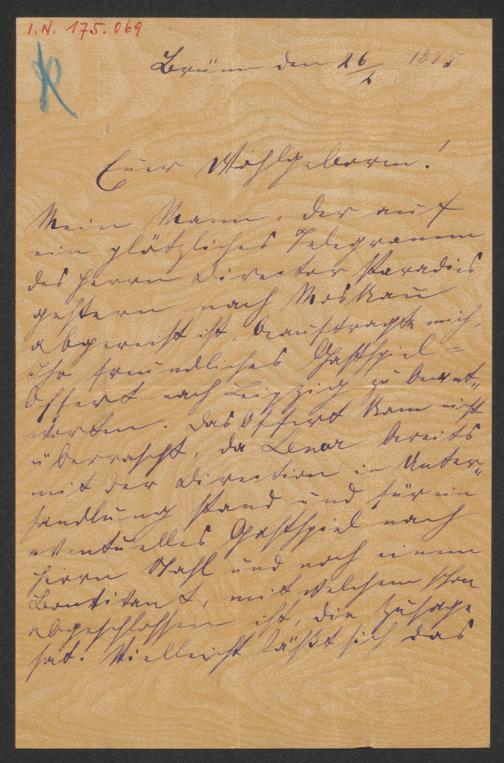 I.N. 175.069
Brünn den 26/2 1885
Euer Wohlgeboren!
Mein Mann, der auf
ein plötzliches Telegramm
des Herrn Director Paradies
gestern nach Moskau
abgereist ist, beauftragte mich,
Ihr freundliches Gastspiel-
Offert nach Leipzig zu beant-
worten. Das Offert kam nicht
überrascht, da bereits
mit der Direction in Unter-
handlung stand und für ein
eventuelles Gastspiel nach
Herrn Stahl und noch einem
, mit welchem schon
abgeschlossen ist, die Zusage
hat. Vielleicht läßt sich das